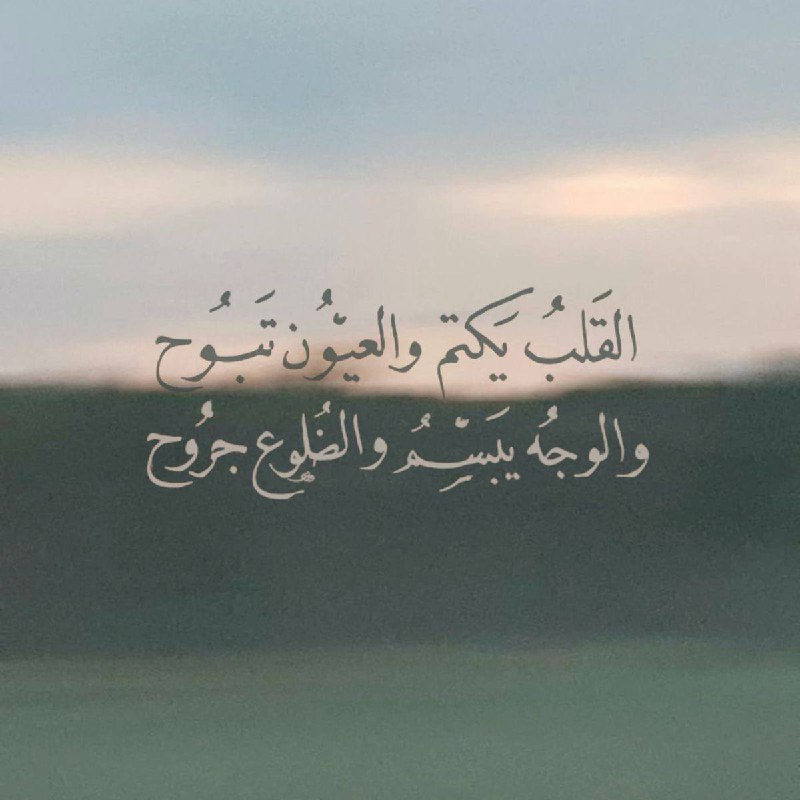 القَلبُ يَكتم والعيّوُن تَبُوح
والوجُه يبَسّمُ والضُلوع جرُوح